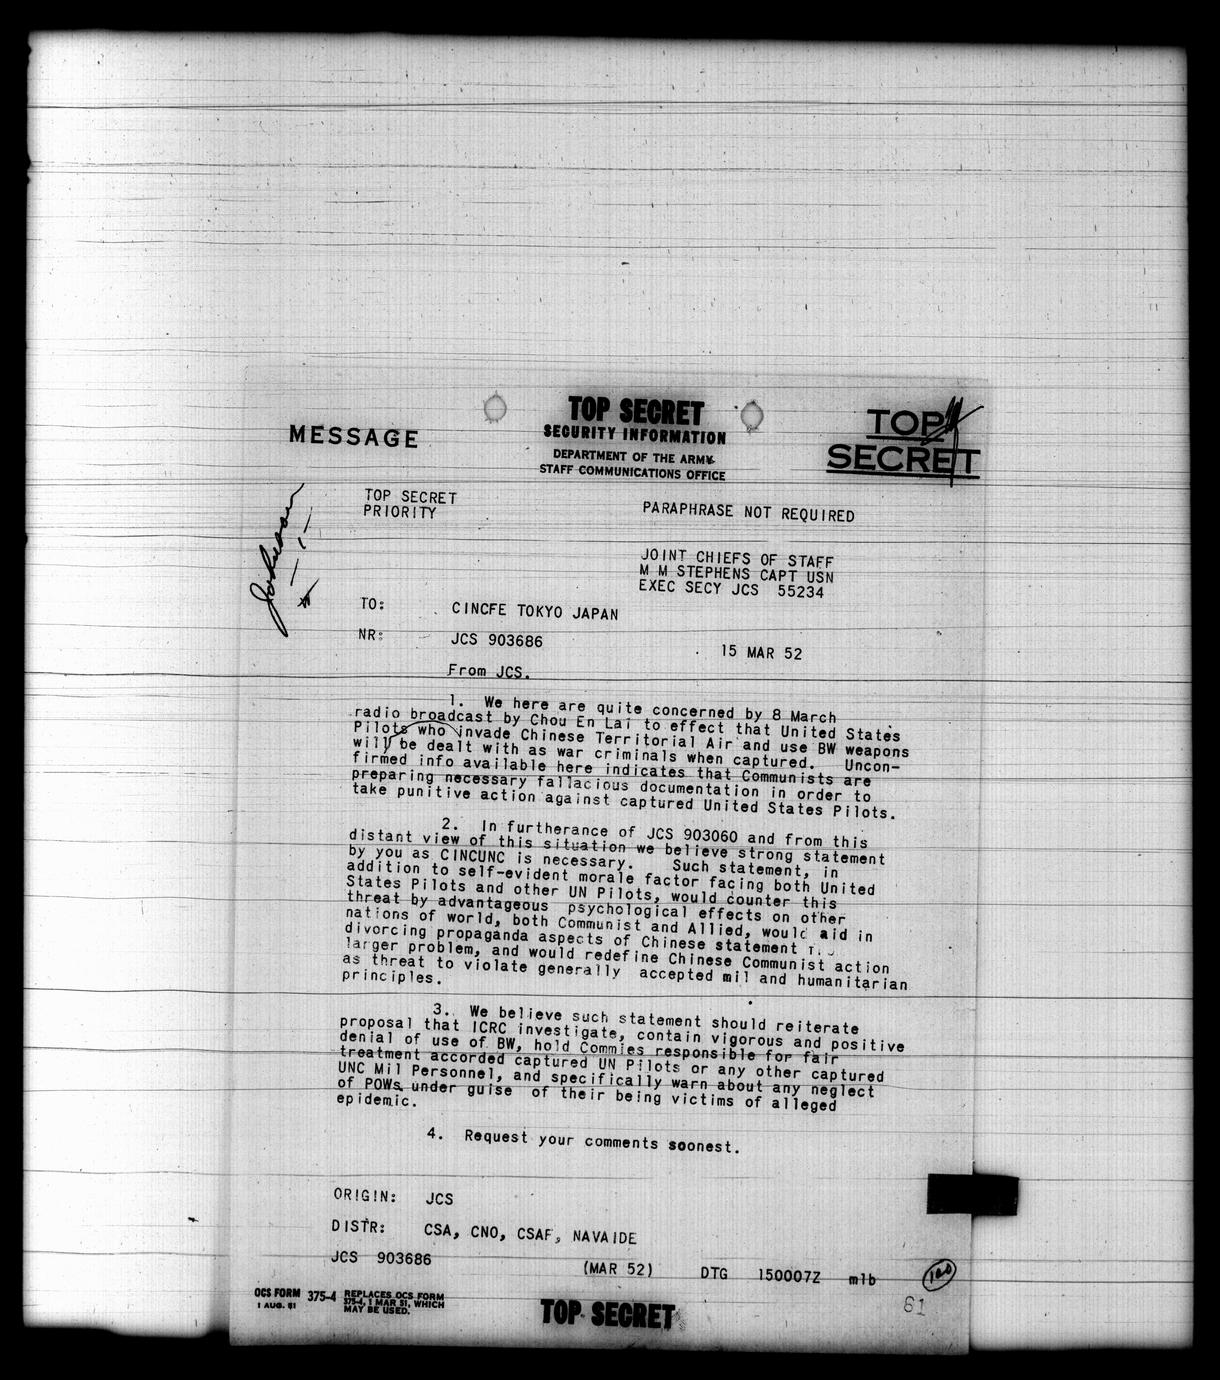 TOP SECRET
SECURITY INFORMATION
TOP
SECRET
MESSAGE
DEPARTMENT OF THE ARMY
STAFF COMMUNICATIONS OFFICE
TOP SECRET
PRIORITY
PARAPHRASE NOT REQUIRED
JOINT CHIEFS OF STAFF
M M STEPHENS CAPT USN
EXEC SECY JCS 55234
TO: CINCFE TOKYO JAPAN
NR: JCS 903686
15 MAR 52
From JCS.
1. We here are quite concerned by 8 March
radio broadcast by Chou En Lai to effect that United States
Pilots who invade Chinese Territorial Air and use BW weapons
will be dealt with as war criminals when captured. Uncon-
firmed info available here indicates that Communists are
preparing necessary fallacious documentation in order to
take punitive action against captured United States Pilots.
2. In furtherance of JCS 903060 and from this
distant view of this situation we believe strong statement
by you as CINCUNC is necessary. Such statement, in
addition to self-evident morale factor facing both United
States Pilots and other UN Pilots, would counter this
threat by advantageous psychological effects on other
nations of world, both Communist and Allied, would aid in
divorcing propaganda aspects of Chinese statement
larger problem, and would redefine Chinese Communist action
as threat to violate generally accepted mil and humanitarian
principles.
3. We believe such statement should reiterate
proposal that ICRC investigate, contain vigorous and positive
denial of use of BW, hold Commies responsible for fair
treatment accorded captured UN Pilots or any other captured
UNC Mil Personnel, and specifically warn about any neglect
of POWs under guise of their being victims of alleged
epidemic.
4. Request your comments soonest.
ORIGIN: JCS
DISTR: CSA, CNO, CSAF, NAVAIDE
JCS 903686 (MAR 52) DTG 150007Z mlb
OCS FORM 375-4 REPLACES OCS FORM
1 AUG. 51 375-4, 1 MAR 51, WHICH
MAY BE USED.
TOP SECRET
61